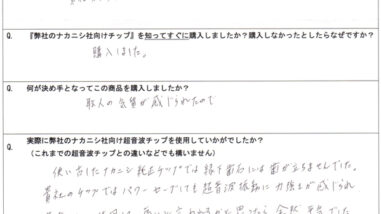 Q.
『弊社のナカニシ社向けチップ』を知ってすぐに購入しましたか?購入しなかったとしたらなぜですか?
購入しました。
Q.
何が決め手となってこの商品を購入しましたか?
が感じられたので
Q.
実際に弊社のナカニシ社向け超音波チップを使用していかがでしたか?
(これまでの超音波チップとの違いなどでも構いません)
使い古したナカニシ純正チップでは縁下歯石には歯が立ちませんでした。
貴社のチップではパワーセーブしても超音波振動に力強さが感じられ